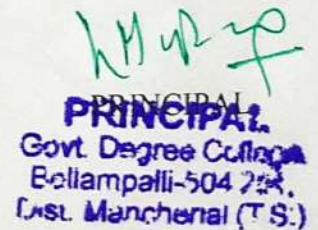 PRINCIPAL
PRINCIPAL
Govt. Degree College
Bellampalli-504
Dist. Mancherial (T.S.)